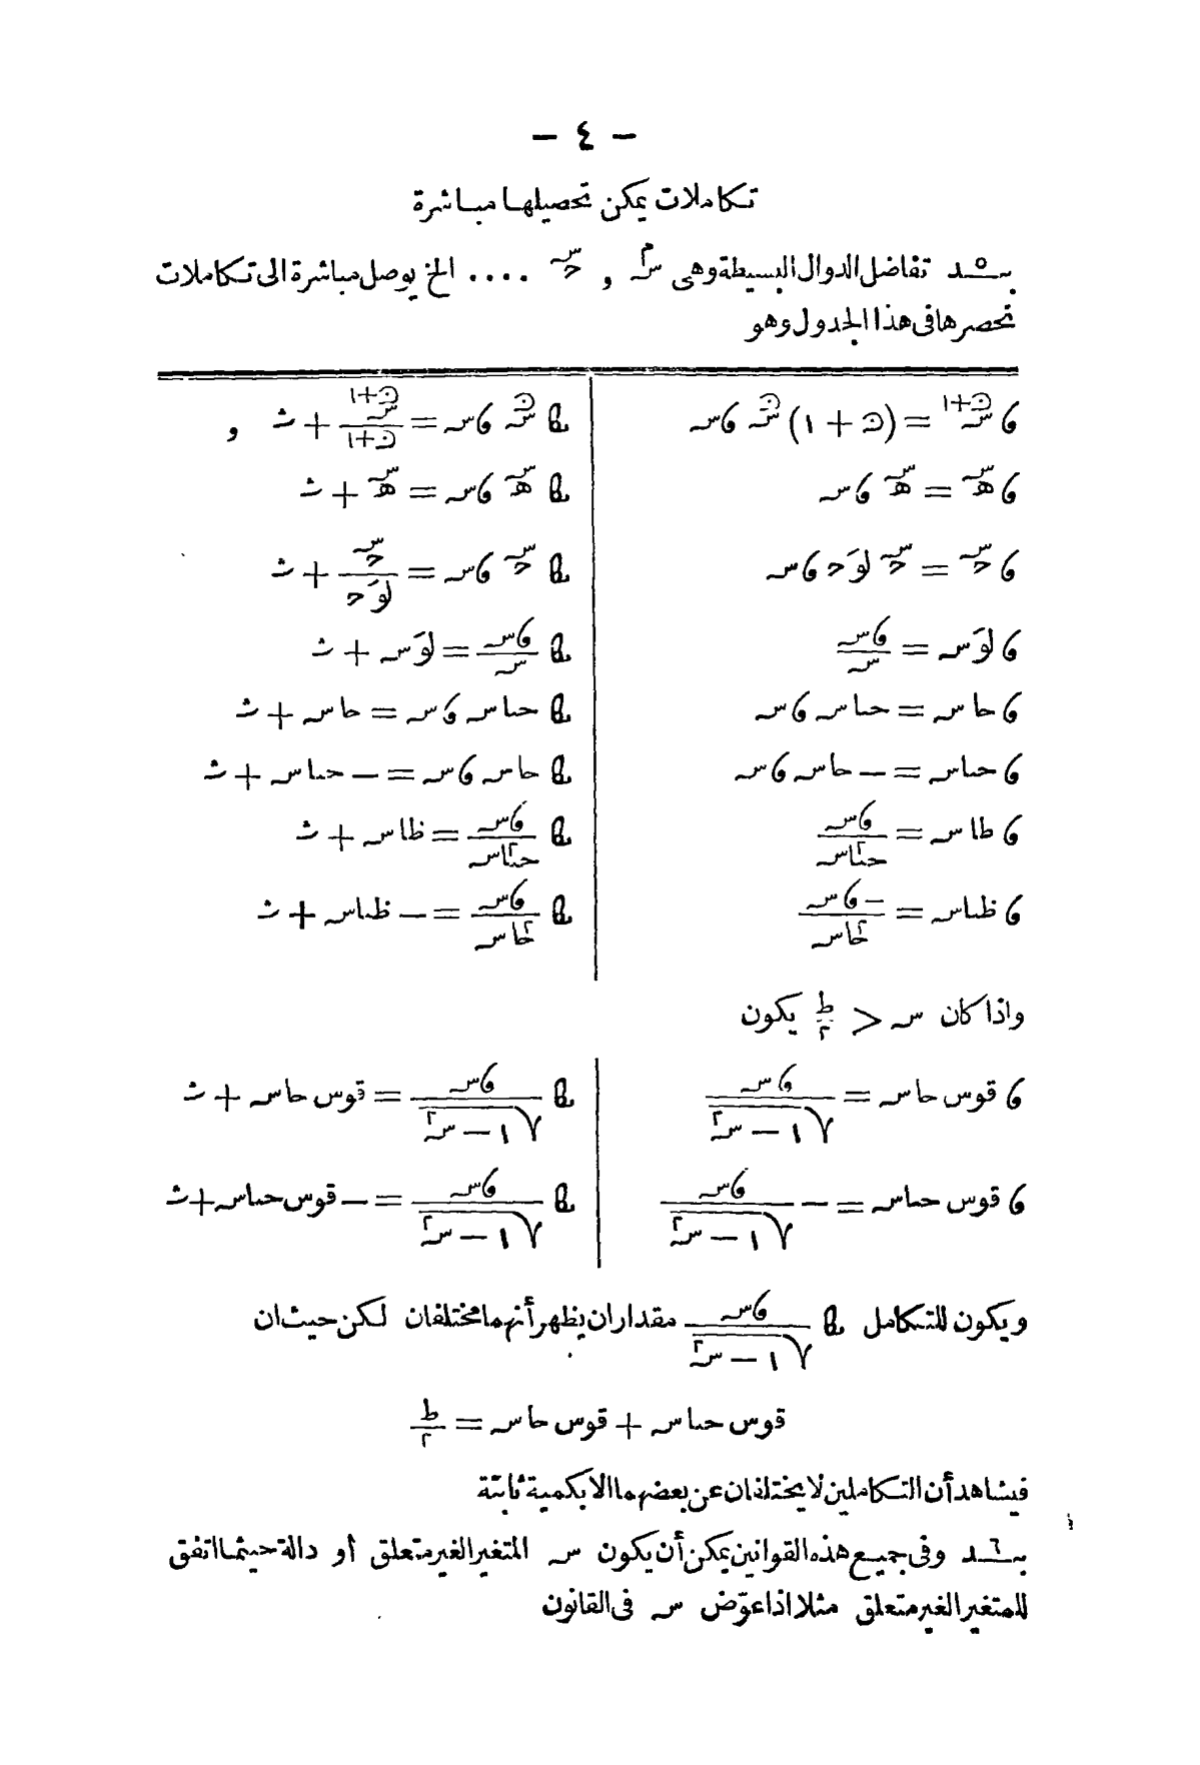 - ٤ -
تكاملات يمكن تحصيلها مباشرة
بـ٥ـد تفاضل الدوال البسيطة وهى س^م و ح^س .... الخ يوصل مباشرة الى تكاملات
نحصرها فى هذا الجدول وهو
ءس^(ن+١) = (ن + ١) س^ن ءس | ما س^ن ءس = س^(ن+١)/(ن+١) + ث و
ءه^س = ه^س ءس | ما ه^س ءس = ه^س + ث
ءح^س = ح^س لوَح ءس | ما ح^س ءس = ح^س/لوَح + ث
ء لوَس = ءس/س | ما ءس/س = لوَس + ث
ء حاس = حتاس ءس | ما حتاس ءس = حاس + ث
ء حتاس = - حاس ءس | ما حاس ءس = - حتاس + ث
ء طاس = ءس/حتا٢س | ما ءس/حتا٢س = ظاس + ث
ء ظتاس = - ءس/حا٢س | ما ءس/حا٢س = - ظتاس + ث
واذا كان س < ط/٢ يكون
ء قوس حاس = ءس/√(١ - س٢) | ما ءس/√(١ - س٢) = قوس حاس + ث
ء قوس حتاس = - ءس/√(١ - س٢) | ما ءس/√(١ - س٢) = - قوس حتاس + ث
ويكون للتكامل ما ءس/√(١ - س٢) مقداران يظهر أنهما مختلفان لكن حيث ان
قوس حتاس + قوس حاس = ط/٢
فيشاهد أن التكاملين لا يختلفان عن بعضهما الا بكمية ثابتة
بـ٦ـد وفى جميع هذه القوانين يمكن أن يكون س المتغير الغير متعلق أو دالة حيثما اتفق
للمتغير الغير متعلق مثلا اذا عوّض س فى القانون